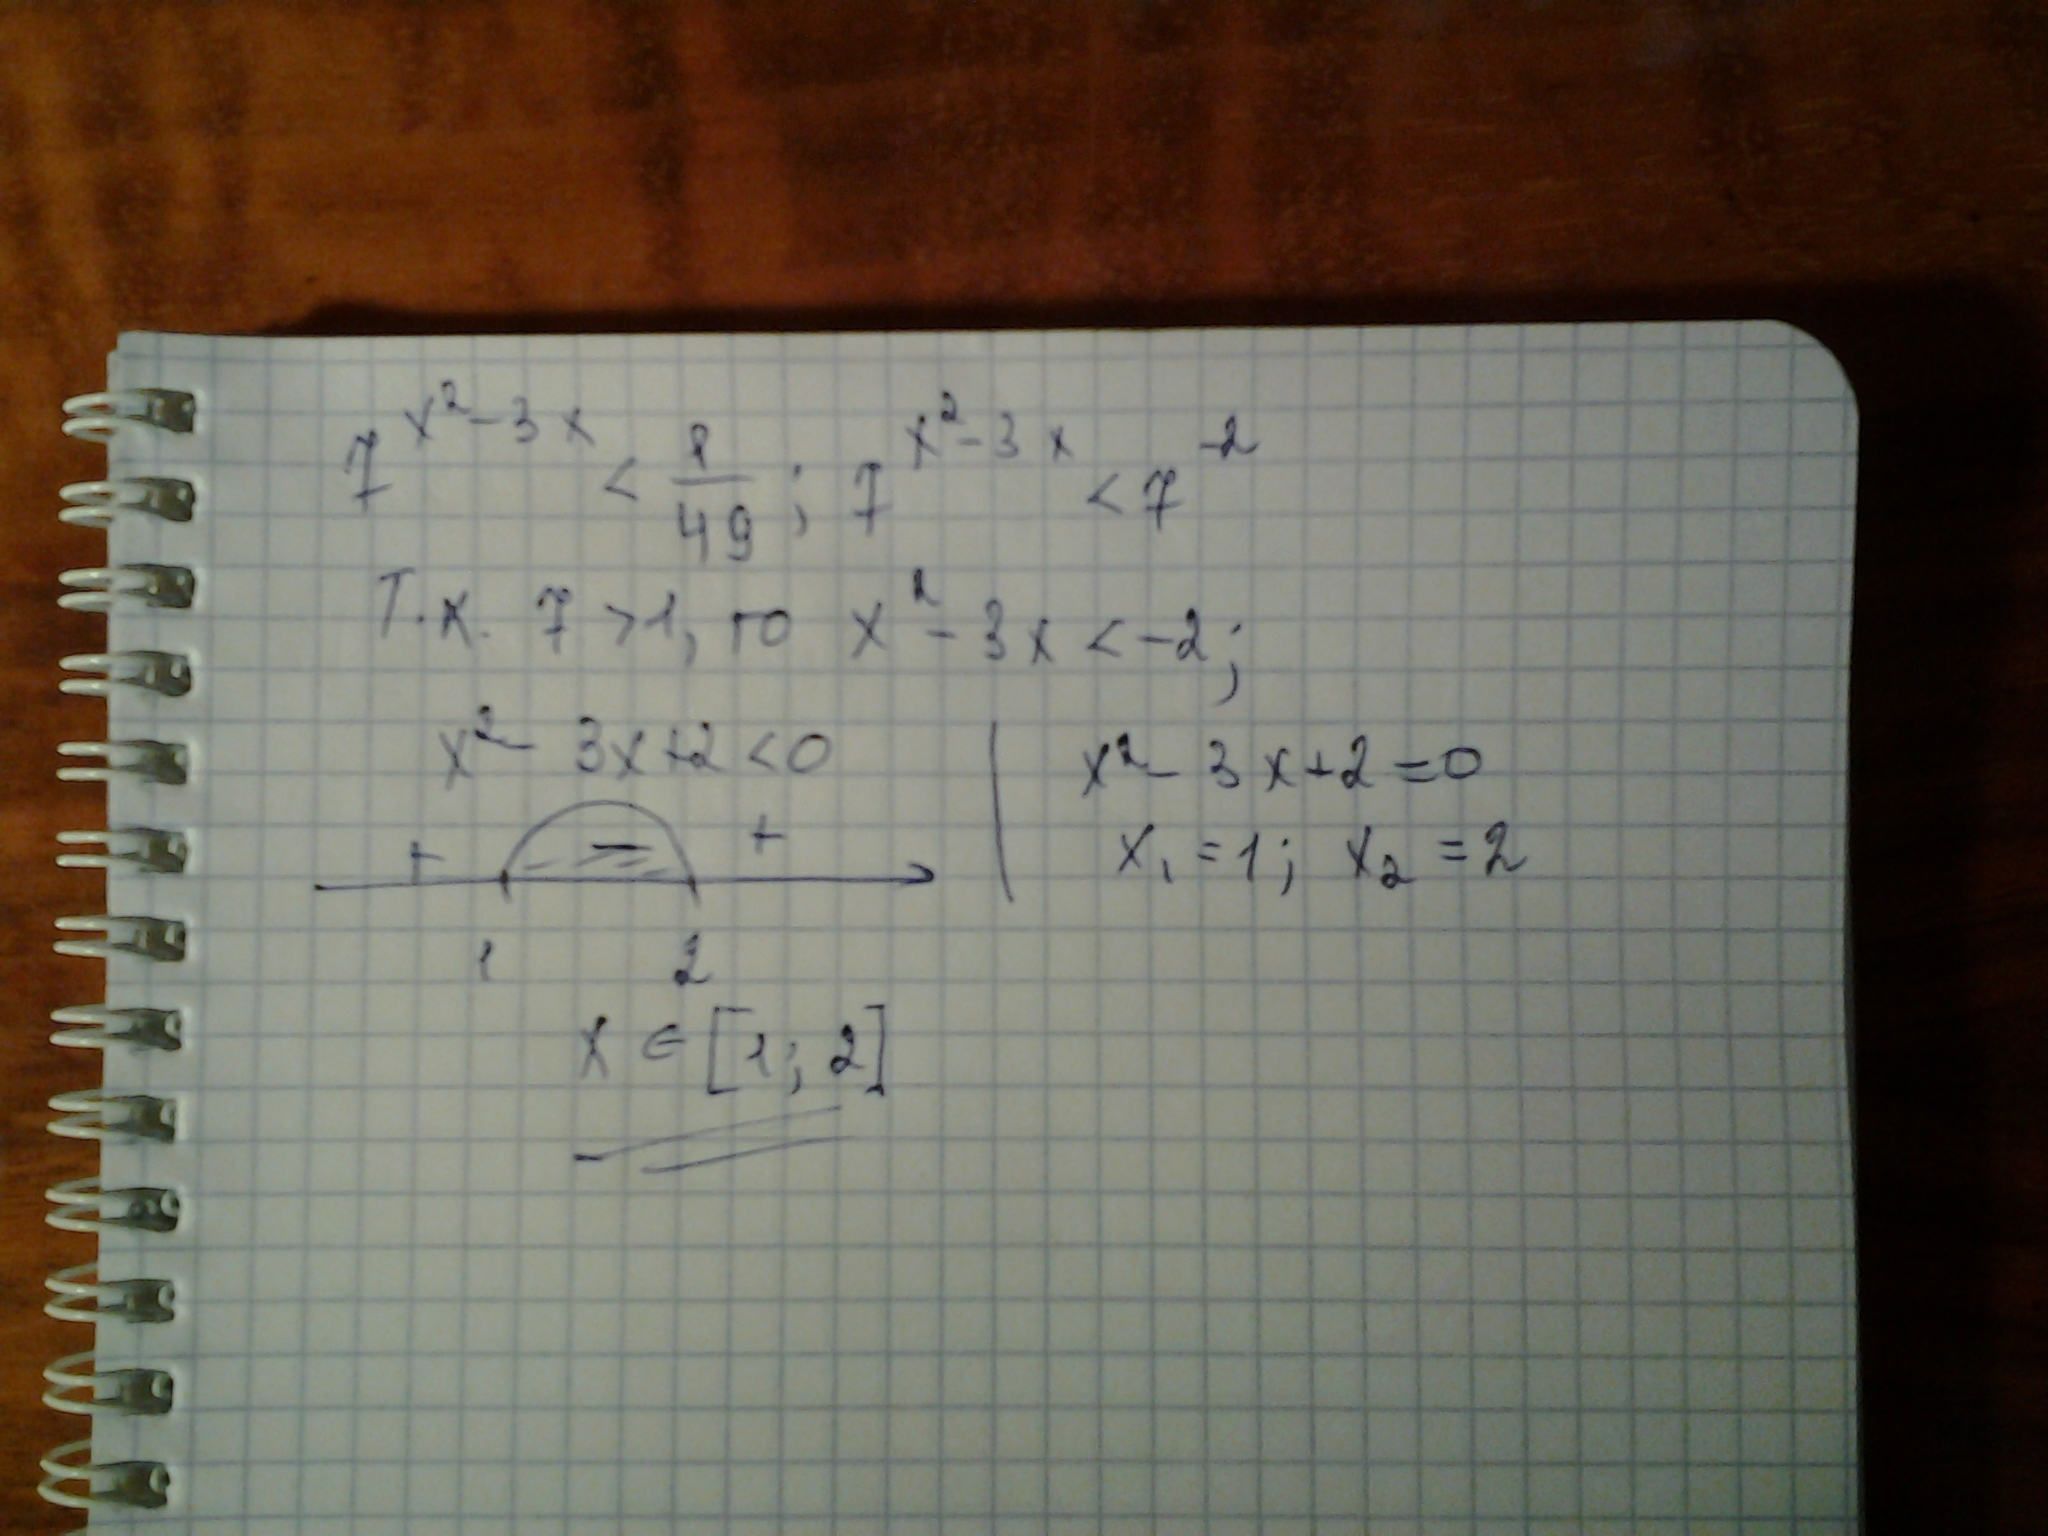 7^{x²-3x} < 1/49; 7^{x²-3x} < 7^{-2}
Т.к. 7 >1, то x² - 3x < -2;
x² - 3x+2 <0
x² - 3x+2 =0
x₁ =1; x₂ =2
+ − +
1 2
x ∈ [1; 2]